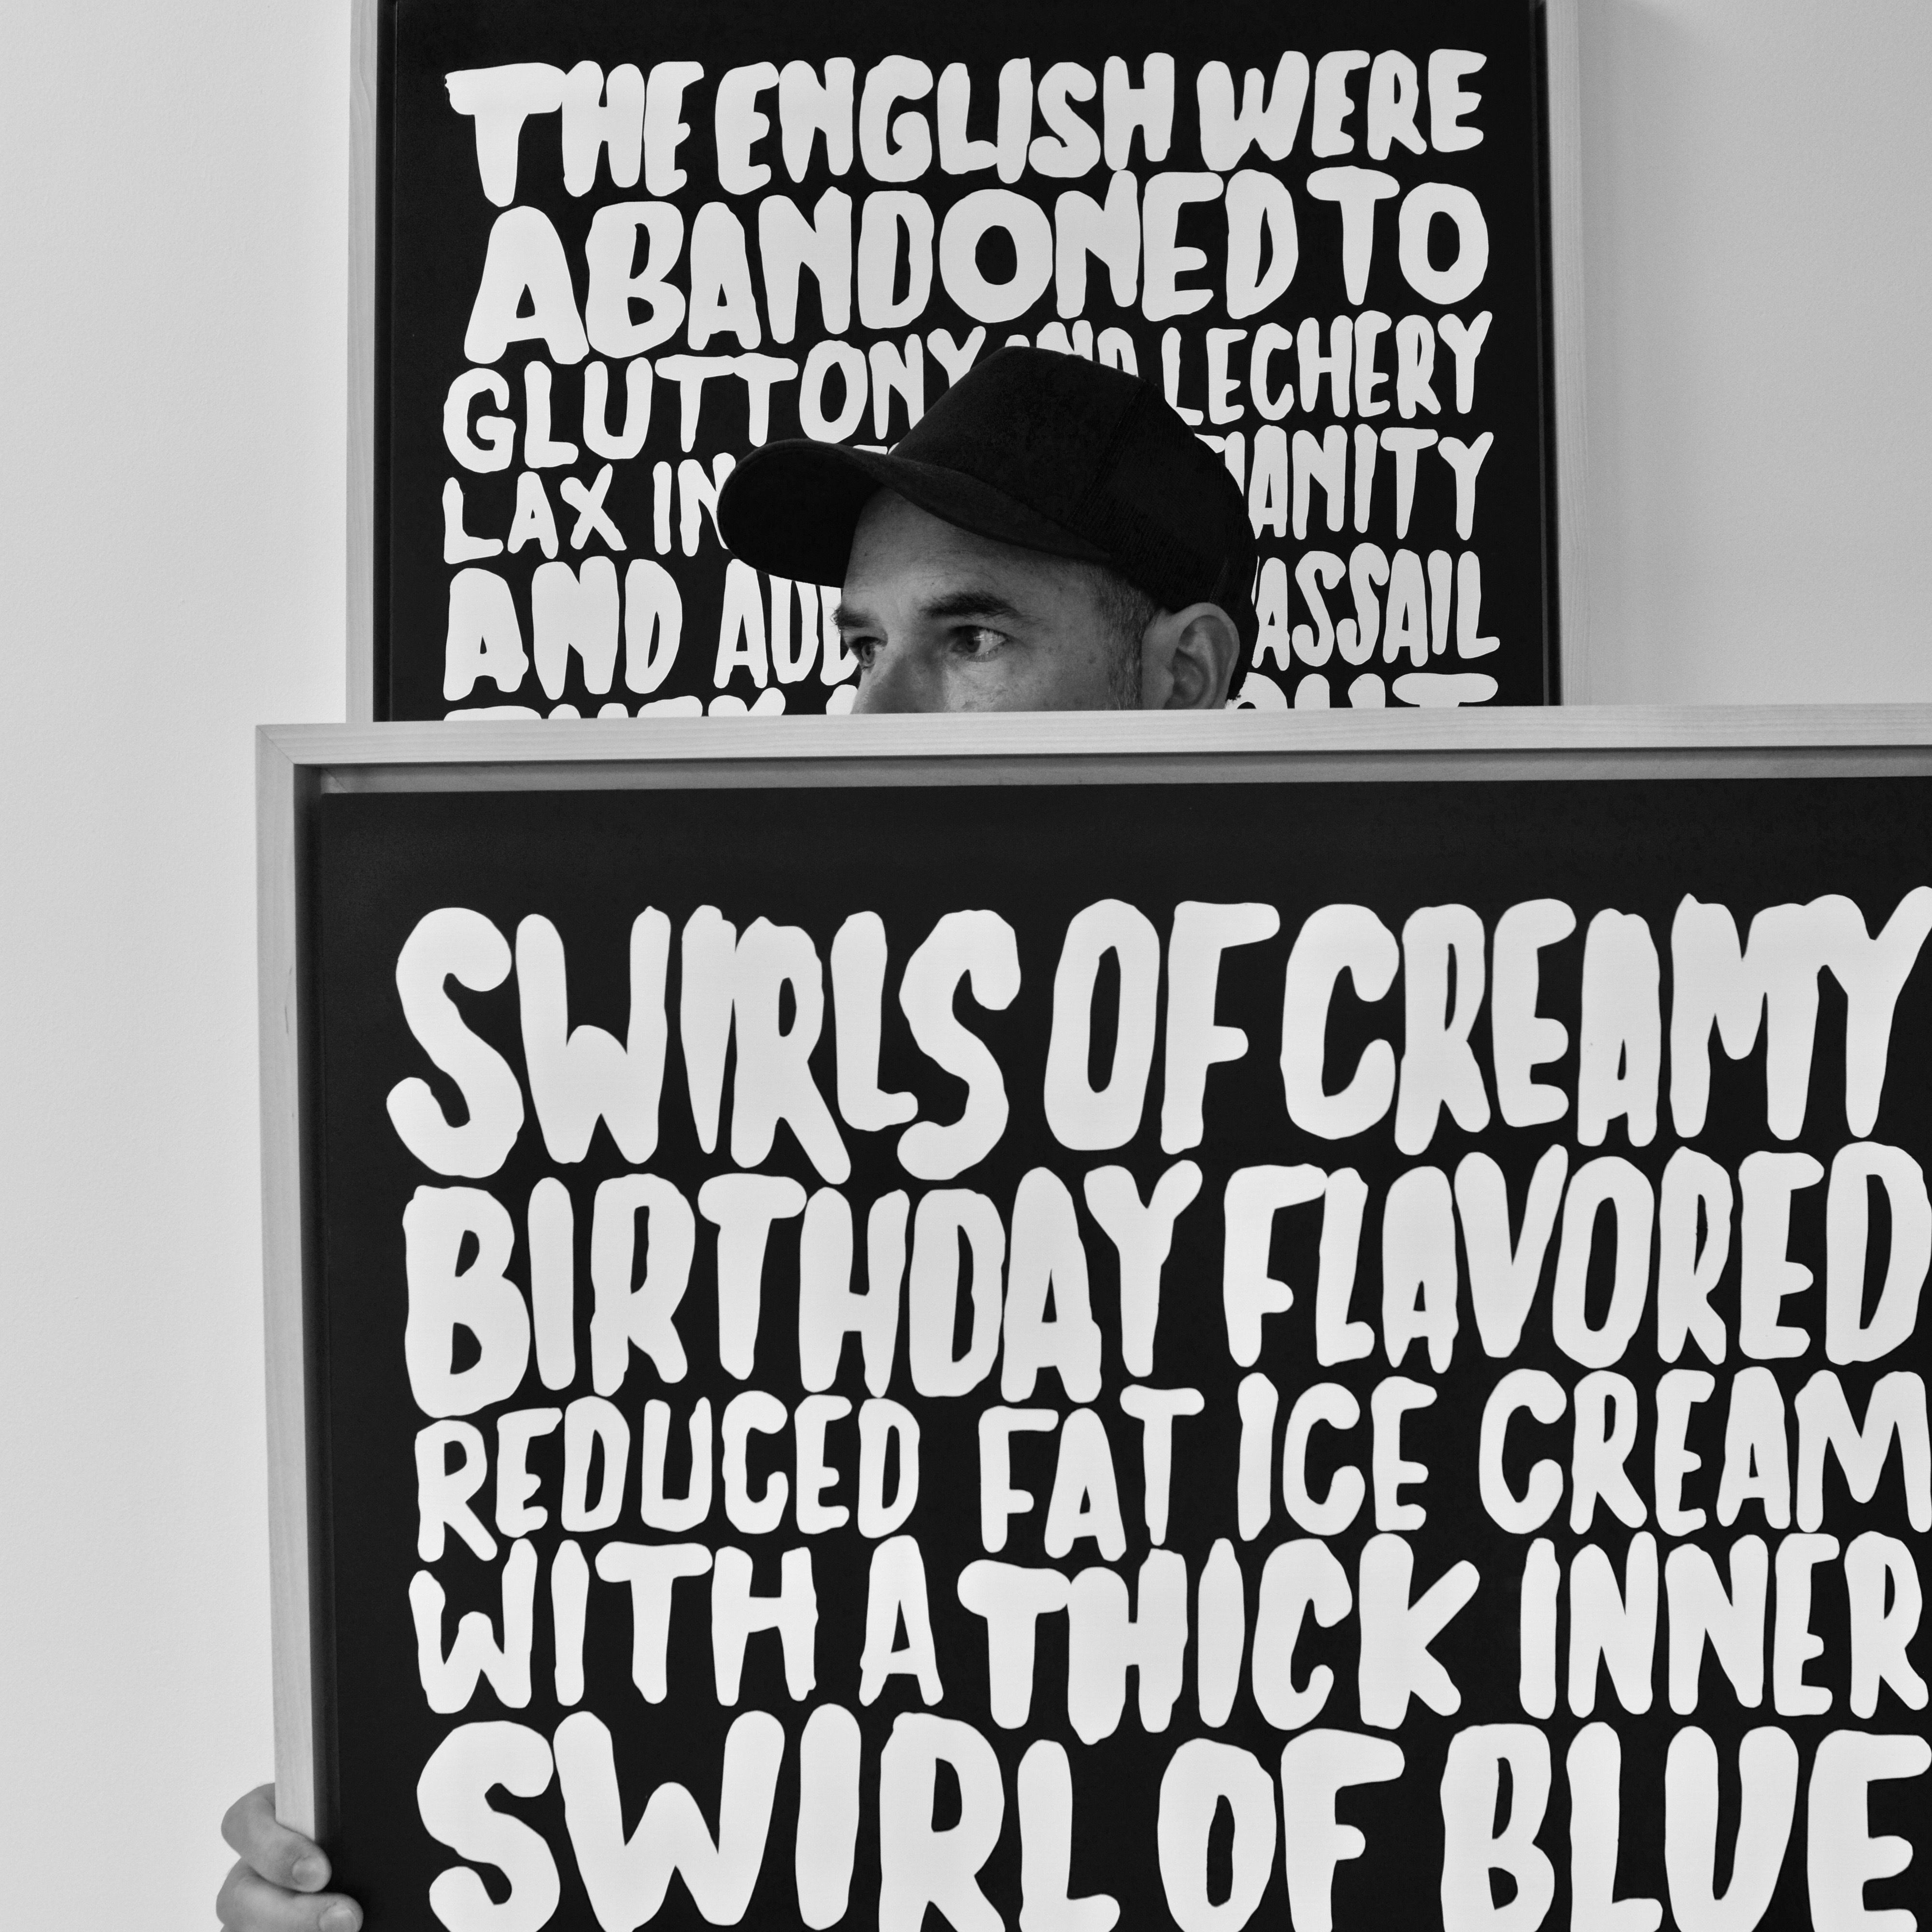 THE ENGLISH WERE
ABANDONED TO
GLUTTONY AND LECHERY
LAX IN
AND
ASSAIL
SWIRLS OF CREAMY
BIRTHDAY FLAVORED
REDUCED FAT ICE CREAM
WITH A THICK INNER
SWIRL OF BLUE